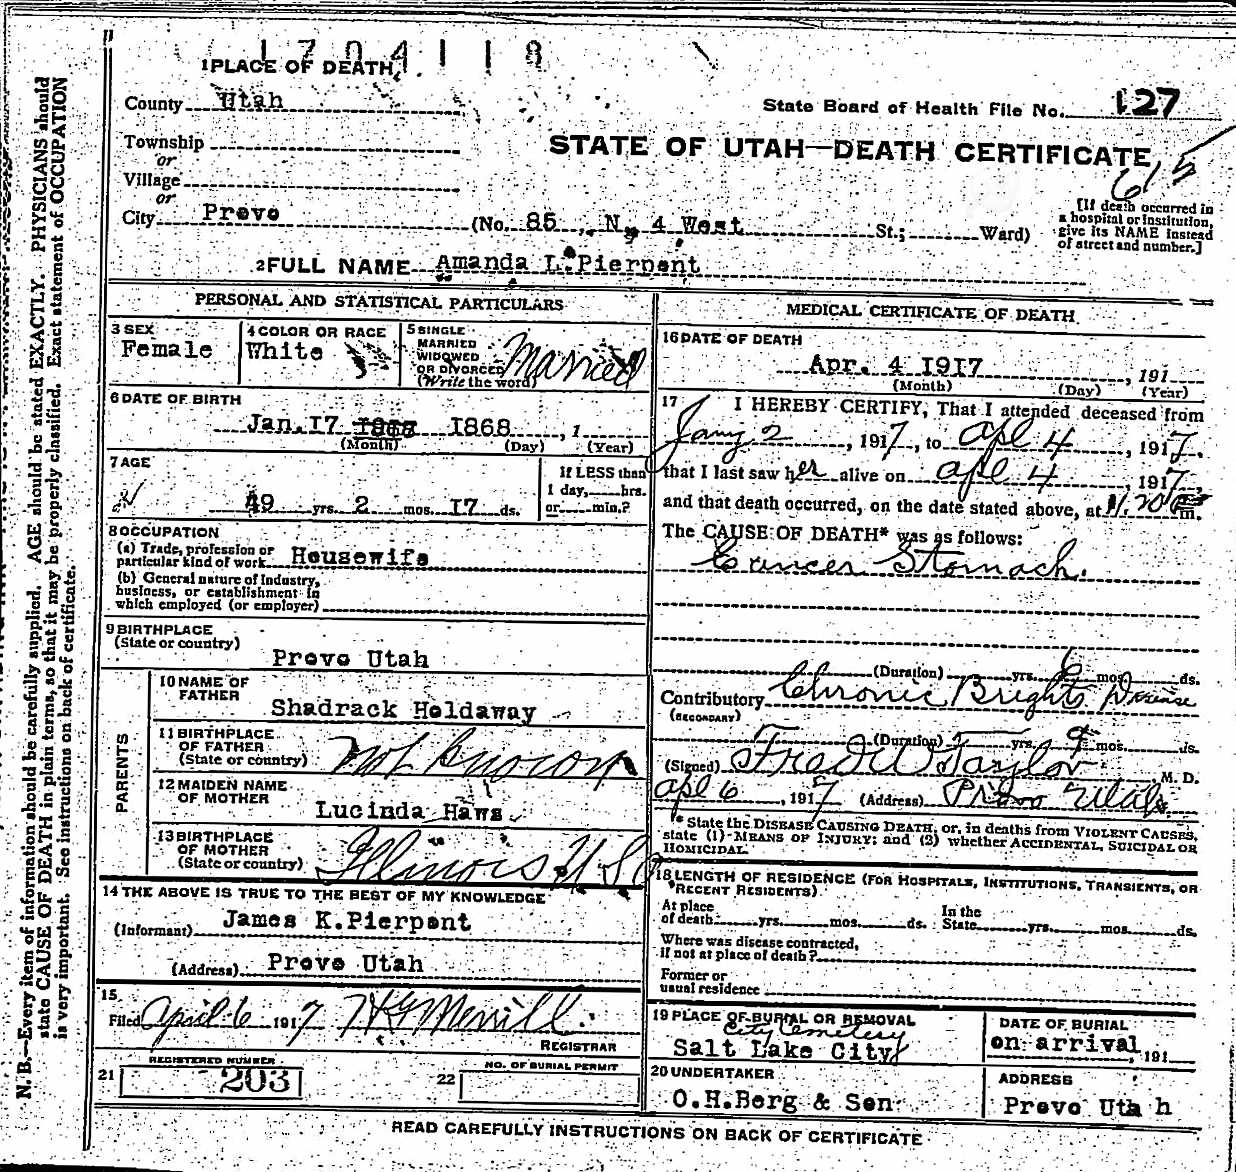 1704118
1 PLACE OF DEATH
County Utah
State Board of Health File No. 127
Township
or
STATE OF UTAH—DEATH CERTIFICATE
615
Village
or
City Provo (No. 85 , N, 4 West St.; Ward)
[If death occurred in
a hospital or institution,
give its NAME instead
of street and number.]
2 FULL NAME Amanda L. Pierpont
PERSONAL AND STATISTICAL PARTICULARS
3 SEX
Female
4 COLOR OR RACE
White
5 SINGLE
MARRIED
WIDOWED
OR DIVORCED
(Write the word)
Married
6 DATE OF BIRTH
Jan. 17 1868 1868 , 1
(Month) (Day) (Year)
7 AGE
49 yrs. 2 mos. 17 ds.
If LESS than
1 day, hrs.
or min.?
8 OCCUPATION
(a) Trade, profession or
particular kind of work Housewife
(b) General nature of Industry,
business, or establishment in
which employed (or employer)
9 BIRTHPLACE
(State or country)
Provo Utah
PARENTS
10 NAME OF
FATHER
Shadrack Holdaway
11 BIRTHPLACE
OF FATHER
(State or country)
not known
12 MAIDEN NAME
OF MOTHER
Lucinda Haws
13 BIRTHPLACE
OF MOTHER
(State or country)
Illinois U S A
14 THE ABOVE IS TRUE TO THE BEST OF MY KNOWLEDGE
(Informant) James K. Pierpont
(Address) Provo Utah
15
Filed April 6 1917 Merrill
REGISTRAR
REGISTERED NUMBER
21 203
NO. OF BURIAL PERMIT
22
MEDICAL CERTIFICATE OF DEATH
16 DATE OF DEATH
Apr. 4 1917 , 191
(Month) (Day) (Year)
17 I HEREBY CERTIFY, That I attended deceased from
Jany 2 , 1917, to apl 4 , 1917.
that I last saw her alive on apl 4 , 1917,
and that death occurred, on the date stated above, at 11.20 m.
The CAUSE OF DEATH* was as follows:
Cancer Stomach.
(Duration) yrs. 6 mos. ds.
Contributory Chronic Brights Disease
(SECONDARY)
(Duration) yrs. 9 mos. ds.
(Signed) Fred W Taylor , M. D.
Apl 6 , 1917 (Address) Provo Utah
* State the DISEASE CAUSING DEATH, or, in deaths from VIOLENT CAUSES,
state (1) MEANS OF INJURY; and (2) whether ACCIDENTAL, SUICIDAL OR
HOMICIDAL.
18 LENGTH OF RESIDENCE (FOR HOSPITALS, INSTITUTIONS, TRANSIENTS, OR
RECENT RESIDENTS)
At place
of death yrs. mos. ds.
In the
State yrs. mos. ds.
Where was disease contracted,
if not at place of death?
Former or
usual residence
19 PLACE OF BURIAL OR REMOVAL
City Cemetery
Salt Lake City
DATE OF BURIAL
on arrival , 191
20 UNDERTAKER
O.H.Berg & Son
ADDRESS
Provo Utah
READ CAREFULLY INSTRUCTIONS ON BACK OF CERTIFICATE
N. B.—Every item of information should be carefully supplied. AGE should be stated EXACTLY. PHYSICIANS should
state CAUSE OF DEATH in plain terms, so that it may be properly classified. Exact statement of OCCUPATION
is very important. See instructions on back of certificate.